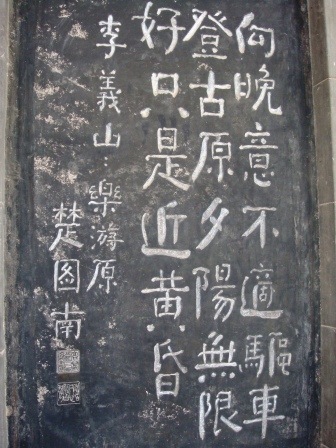 向晚意不適驅車
登古原夕陽無限
好只是近黃昏
李義山：樂游原
楚图南